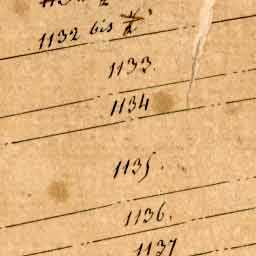 1132 bis
1133.
1134
1135.
1136.
1137